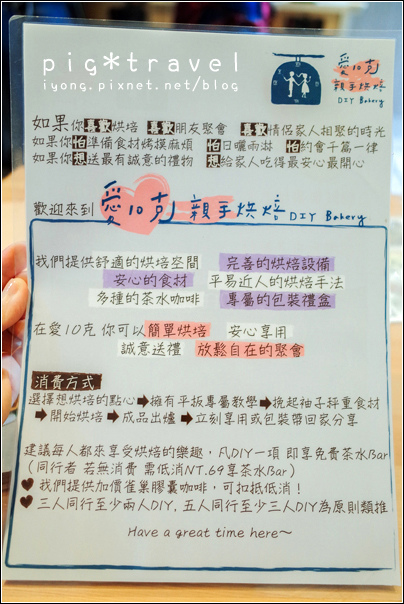 pig*travel
iyong.pixnet.net/blog
愛10克
親手烘焙
DIY Bakery
如果你喜歡烘焙 喜歡朋友聚會 喜歡情侶家人相聚的時光
如果你怕準備食材烤摸麻煩 怕日曬雨淋 怕約會千篇一律
如果你想送最有誠意的禮物 想給家人吃得最安心最開心
歡迎來到 愛10克 親手烘焙 DIY Bakery
我們提供舒適的烘焙空間 完善的烘焙設備
安心的食材 平易近人的烘焙手法
多種的茶水咖啡 專屬的包裝禮盒
在愛10克 你可以簡單烘焙 安心享用
誠意送禮 放鬆自在的聚會
消費方式
選擇想烘焙的點心➡擁有平板專屬教學➡挽起袖子秤重食材
➡開始烘焙➡成品出爐➡立刻享用或包裝帶回家分享
建議每人都來享受烘焙的樂趣，凡DIY一項 即享免費茶水Bar
(同行者 若無消費 需低消NT.69享茶水Bar)
♥ 我們提供加價雀巢膠囊咖啡，可扣抵低消！
♥ 三人同行至少兩人DIY. 五人同行至少三人DIY為原則類推
Have a great time here～